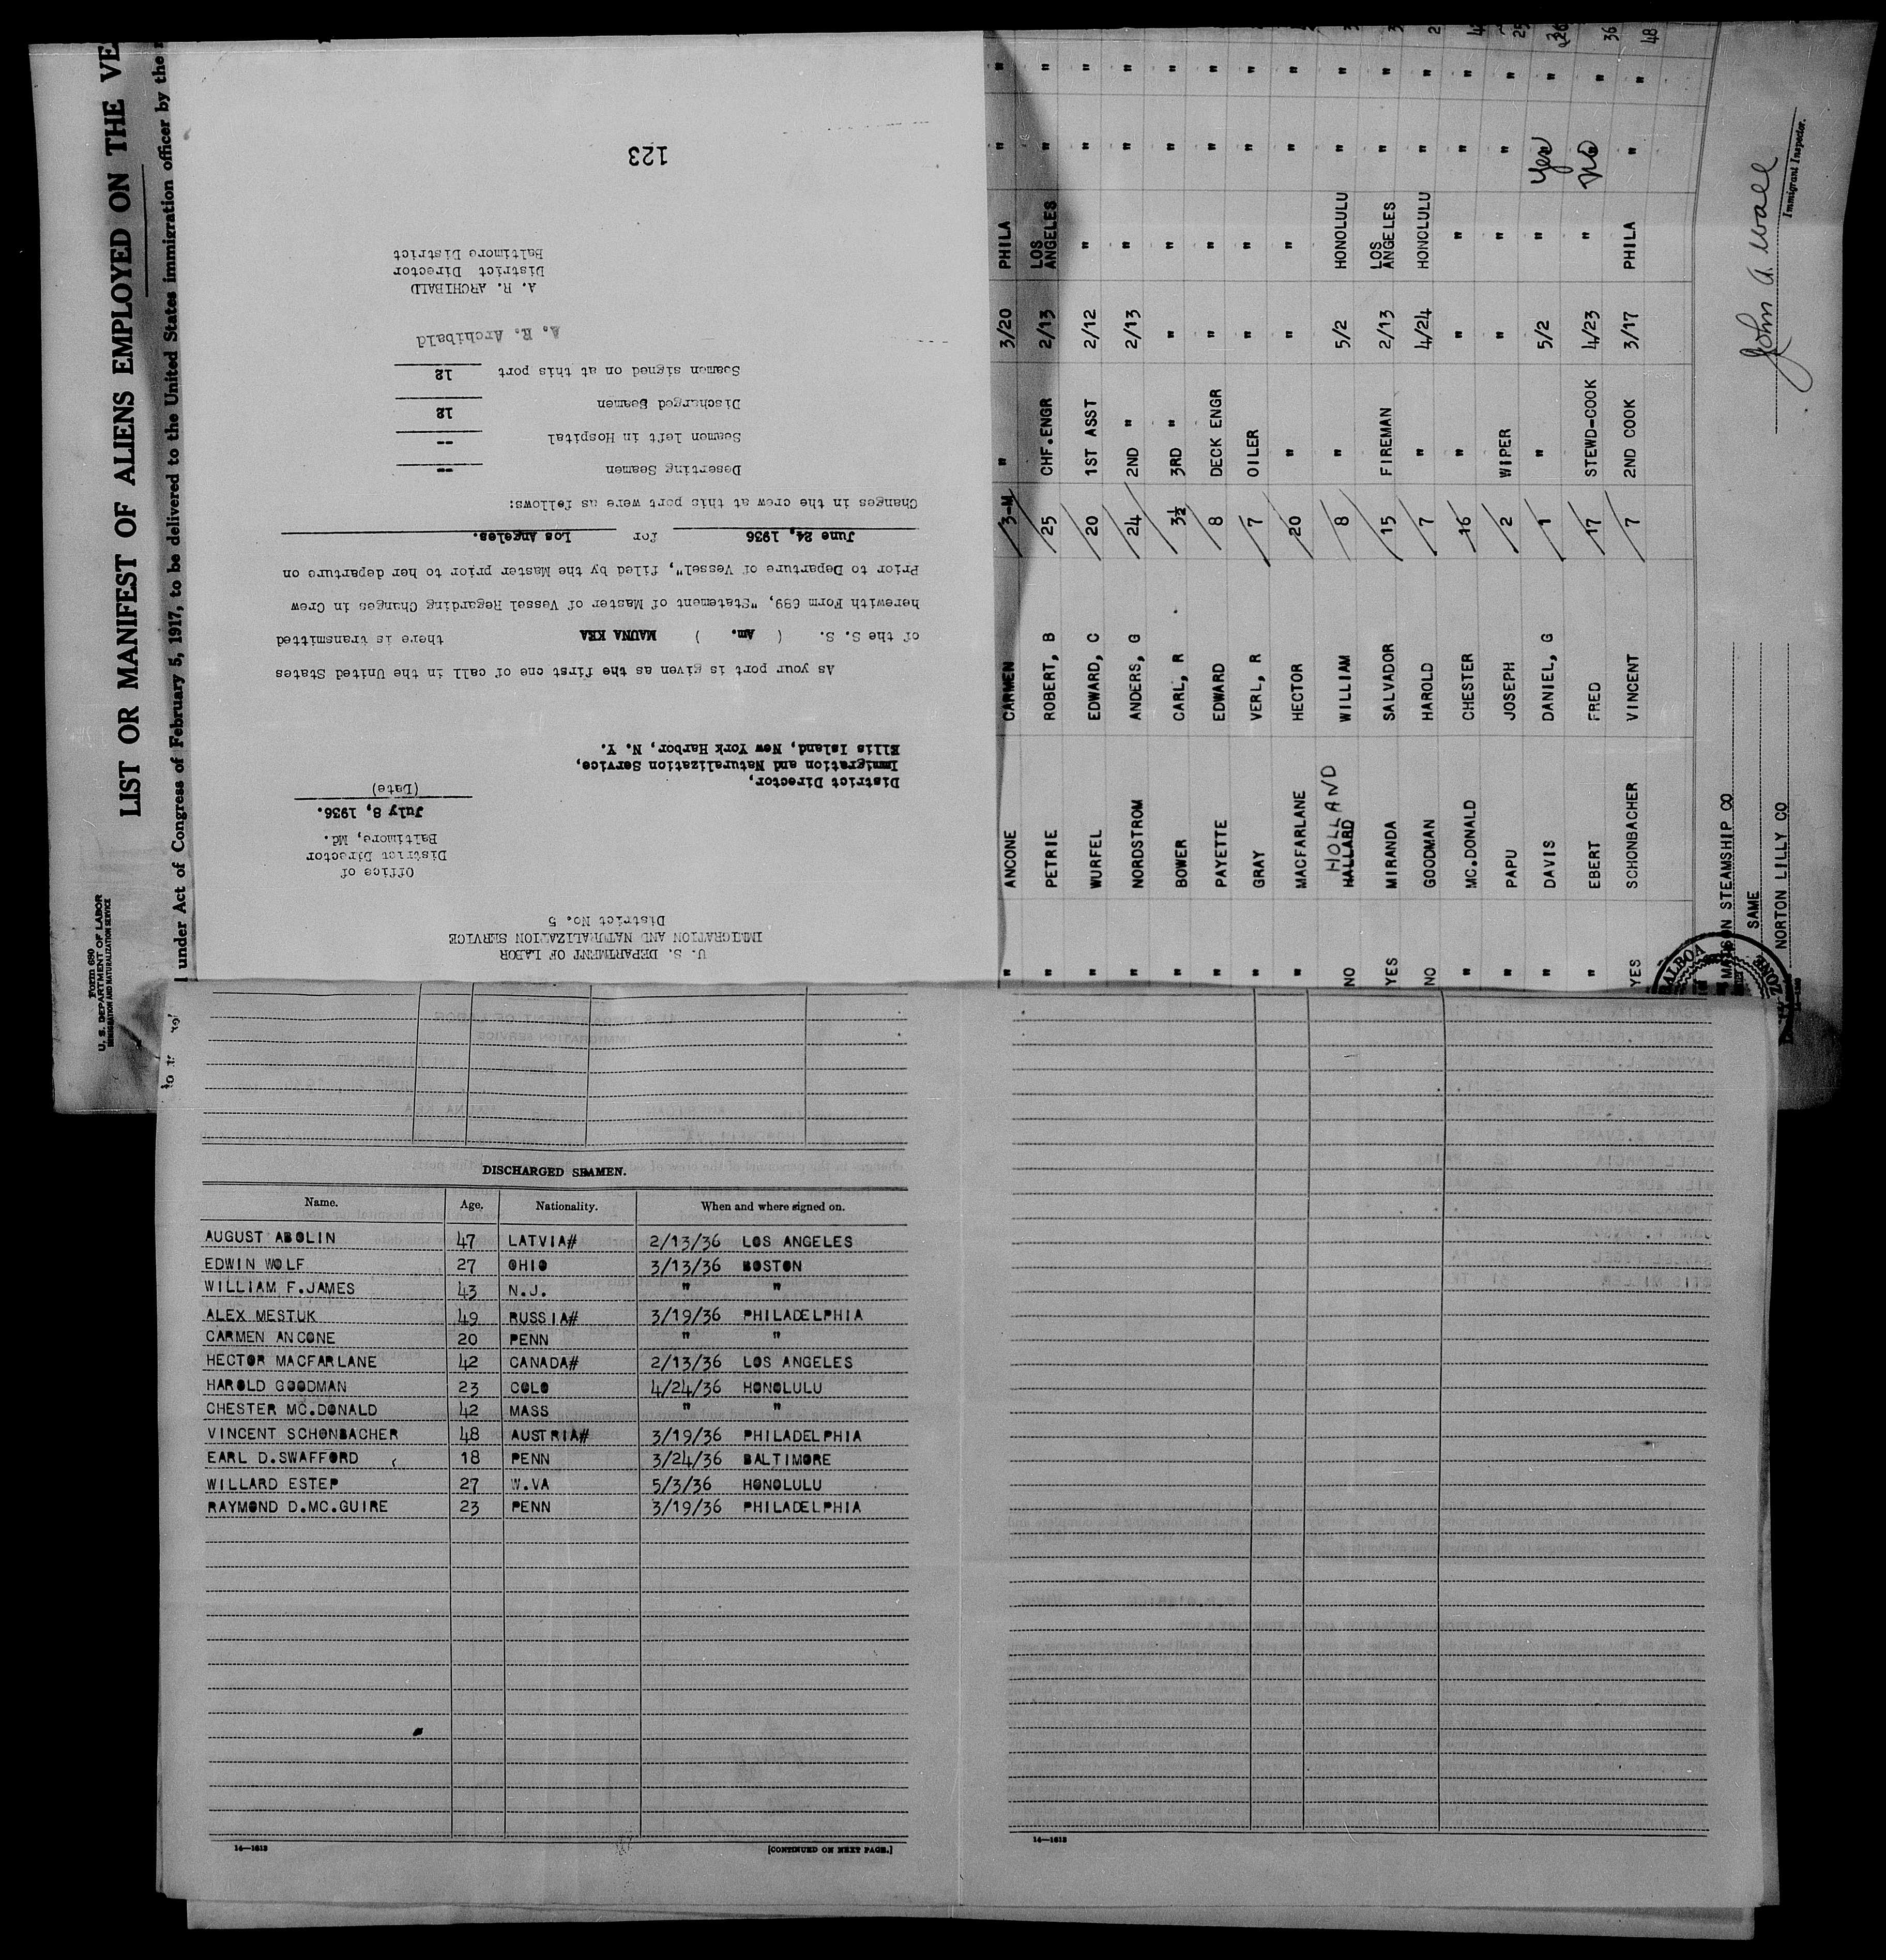 Form 680
U. S. DEPARTMENT OF LABOR
IMMIGRATION AND NATURALIZATION SERVICE
LIST OR MANIFEST OF ALIENS EMPLOYED ON THE VE
under Act of Congress of February 5, 1917, to be delivered to the United States immigration officer by the
U. S. DEPARTMENT OF LABOR
IMMIGRATION AND NATURALIZATION SERVICE
District No. 5
Office of
District Director
Baltimore, Md.
July 8, 1936.
(Date)
District Director,
Immigration and Naturalization Service,
Ellis Island, New York Harbor, N. Y.
As your port is given as the first one of call in the United States
of the S. S. ( Am. ) MAUNA KEA there is transmitted
herewith Form 689, "Statement of Master of Vessel Regarding Changes in Crew
Prior to Departure of Vessel", filed by the Master prior to her departure on
June 24, 1936 for Los Angeles.
Changes in the crew at this port were as follows:
Deserting Seamen --
Seamen left in Hospital --
Discharged Seamen 12
Seamen signed on at this port 12
A. R. Archibald
A. R. ARCHIBALD
District Director
Baltimore District
123
" ANCONE CARMEN 3-M " 3/20 PHILA " "
" PETRIE ROBERT, B 25 CHF.ENGR 2/13 LOS ANGELES " "
" WURFEL EDWARD, C 20 1ST ASST 2/12 " " "
" NORDSTROM ANDERS, G 24 2ND " 2/13 " " "
" BOWER CARL, R 3½ 3RD " " " " "
" PAYETTE EDWARD 8 DECK ENGR " " " "
" GRAY VERL, R 7 OILER " " " "
" MACFARLANE HECTOR 20 " " " " "
NO HALLARD HOLLAND WILLIAM 8 " 5/2 HONOLULU " "
YES MIRANDA SALVADOR 15 FIREMAN 2/13 LOS ANGELES " "
NO GOODMAN HAROLD 7 " 4/24 HONOLULU " "
" MC.DONALD CHESTER 16 " " " " "
" PAPU JOSEPH 2 WIPER " " " "
" DAVIS DANIEL, G 1 " 5/2 " Yes "
" EBERT FRED 17 STEWD-COOK 4/23 " No " 36
YES SCHONBACHER VINCENT 7 2ND COOK 3/17 PHILA " " 48
MATSON STEAMSHIP CO
SAME
NORTON LILLY CO
BALBOA
ZONE
John A. Wall
Immigrant Inspector.
DISCHARGED SEAMEN.
Name. Age. Nationality. When and where signed on.
AUGUST ABOLIN 47 LATVIA# 2/13/36 LOS ANGELES
EDWIN WOLF 27 OHIO 3/13/36 BOSTON
WILLIAM F.JAMES 43 N.J. " "
ALEX MESTUK 49 RUSSIA# 3/19/36 PHILADELPHIA
CARMEN ANCONE 20 PENN " "
HECTOR MACFARLANE 42 CANADA# 2/13/36 LOS ANGELES
HAROLD GOODMAN 23 COLO 4/24/36 HONOLULU
CHESTER MC.DONALD 42 MASS " "
VINCENT SCHONBACHER 48 AUSTRIA# 3/19/36 PHILADELPHIA
EARL D.SWAFFORD 18 PENN 3/24/36 BALTIMORE
WILLARD ESTEP 27 W.VA 5/3/36 HONOLULU
RAYMOND D.MC.GUIRE 23 PENN 3/19/36 PHILADELPHIA
14—1613
[CONTINUED ON NEXT PAGE.]
14—1613